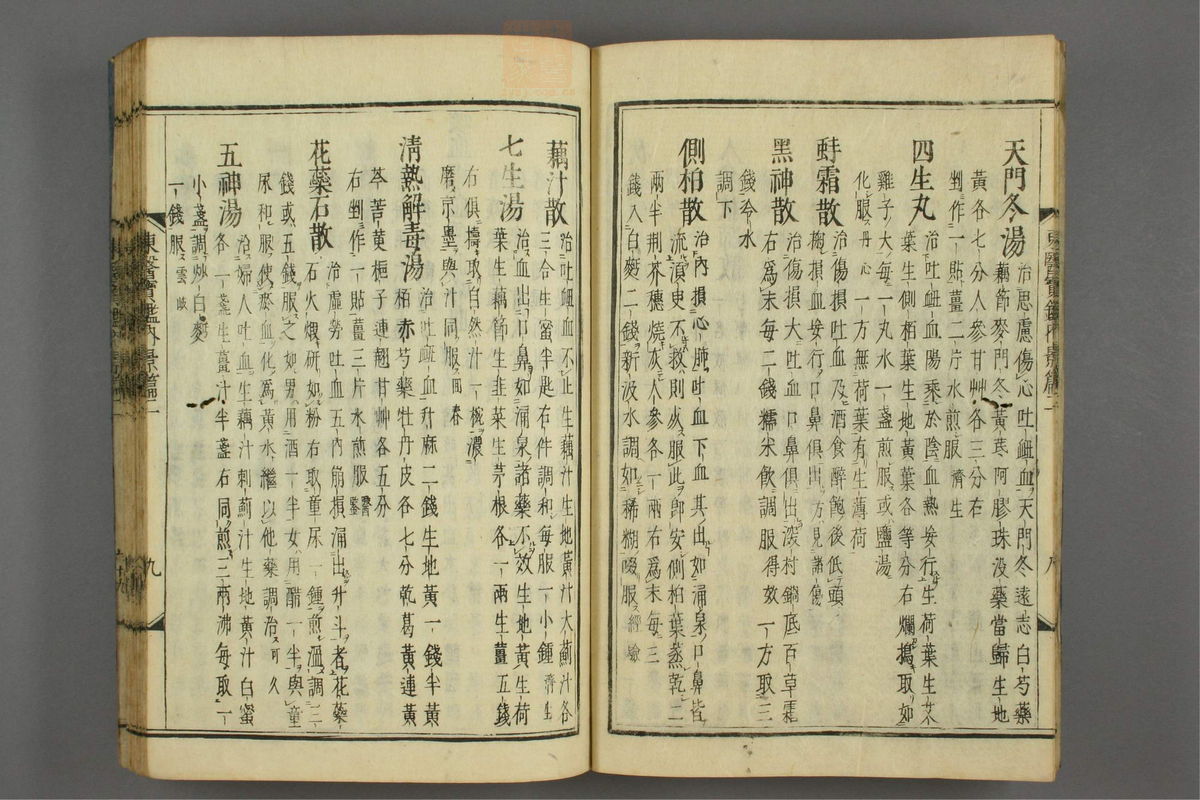 天門冬湯 治思慮傷心吐衄血天門冬遠志白芍藥
藕節麥門冬黃芪阿膠珠沒藥當歸生地
黃各七分人參甘艸各三分右
剉作一貼薑三片水煎服 濟生
四生丸 治吐衄血陽乘於陰血熱妄行生荷葉生艾
葉生側栢葉生地黃葉各等分右爛搗取如
雞子大每一丸水一盞煎服或鹽湯
化服 丹心 一方無荷葉有生薄荷
蚌霜散 治傷損吐血及酒食醉飽後低頭
掬損血妄行口鼻俱出 方見諸傷
黑神散 治傷損大吐血口鼻俱出滾村鍋底百草霜
右爲末每二錢糯米飮調服得效 一方取三
錢冷水
調下
側柏散 治內損心肺吐血下血其出如涌泉口鼻皆
流須臾不救則死服此卽安側柏葉蒸乾二
兩半荆芥穗燒灰人參各一兩右爲末每三
錢入白麪二錢新汲水調如稀糊啜服 經驗
東醫寶鑑內景篇二
藕汁散 治吐衄血不止生藕汁生地黃汁大薊汁各
三合生蜜半匙右件調和每服一小鍾 濟生
七生湯 治血出口鼻如涌泉諸藥不效生地黃生荷
葉生藕節生韭菜生茅根各一兩生薑五錢
右俱搗取自然汁一椀濃
磨京墨與汁同服 回春
淸熱解毒湯 治吐衄血升麻二錢生地黃一錢半黃
栢赤芍藥牡丹皮各七分乾葛黃連黃
芩苦黃梔子連翹甘艸各五分
右剉作一貼薑三片水煎服 醫鑑
花藥石散 治虛勞吐血五內崩損涌出升斗者花藥
石火煅硏如粉右取童尿一鍾煎溫調三
錢或五錢服之如男用酒一半女用醋一半與童
尿和服使瘀血化爲黃水繼以他藥調治 可久
五神湯 治婦人吐血生藕汁刺薊汁生地黃汁白蜜
各一盞生薑汁半盞右同煎三兩沸每取一
小盞調炒白麪
一錢服 雲岐
東醫寶鑑內景篇二 九